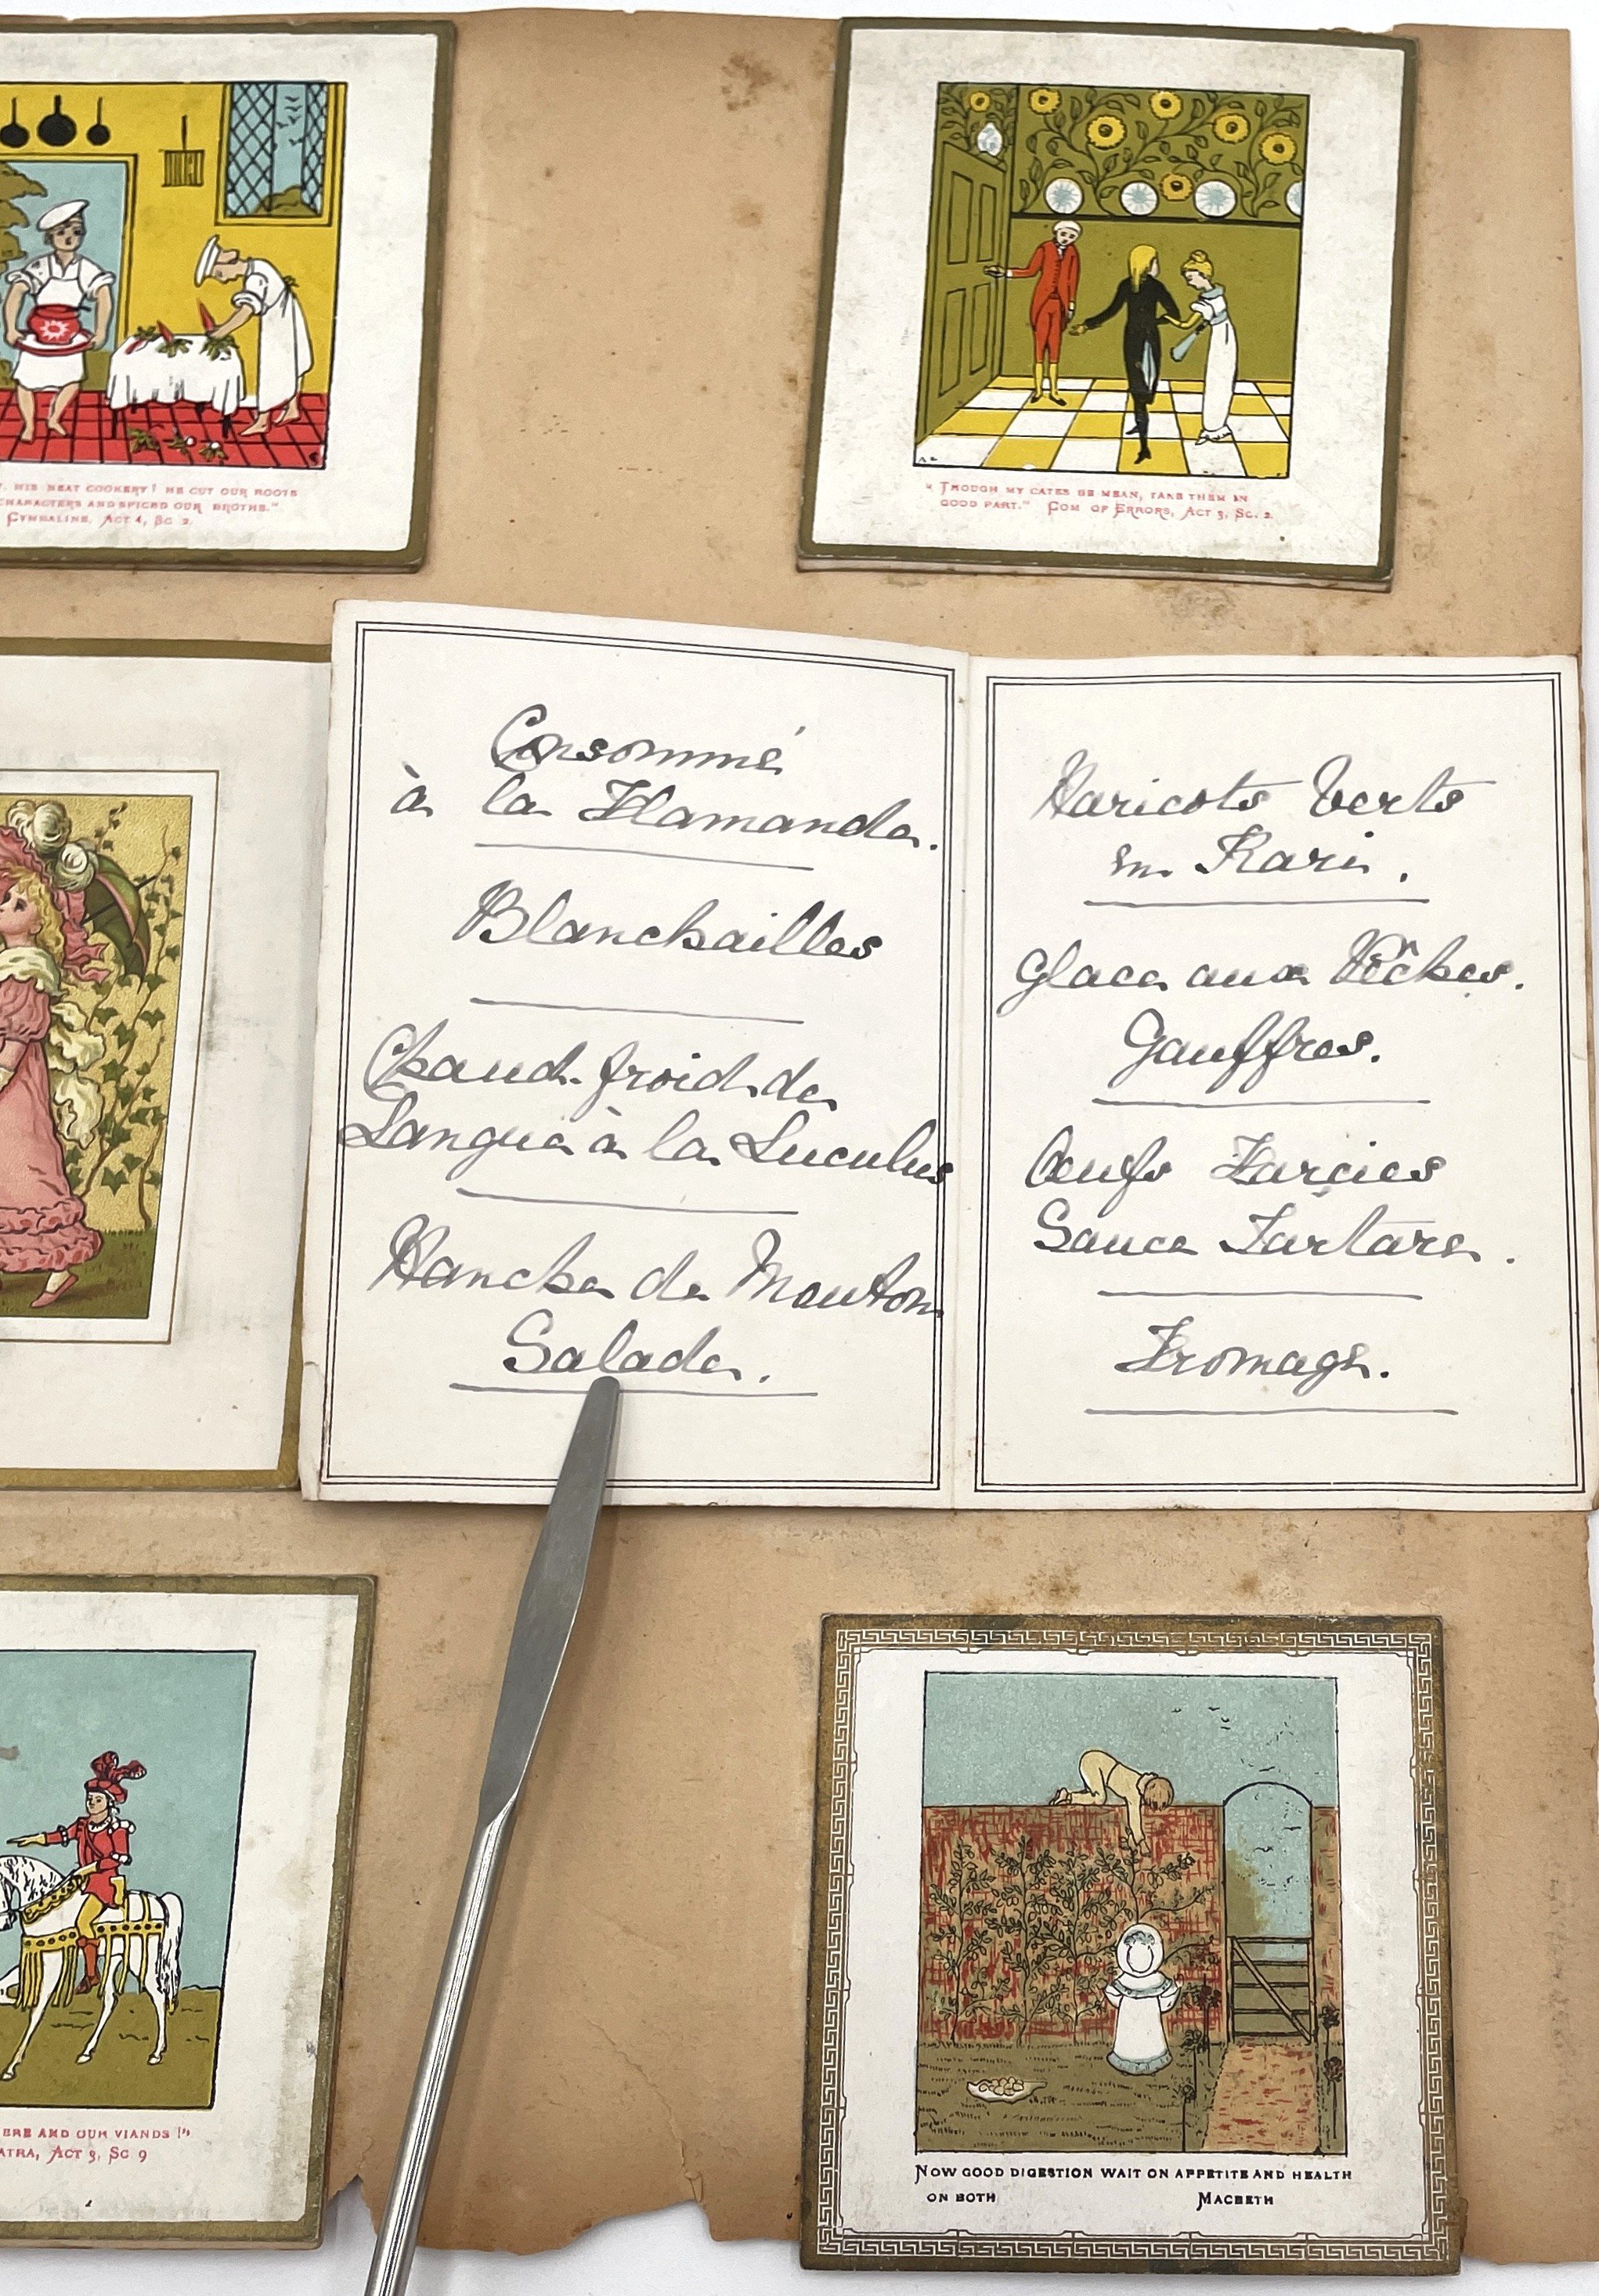 , HIS NEAT COOKERY! HE CUT OUR ROOTS
CHARACTERS AND SPICED OUR BROTHS."
CYMBALINE, ACT 4, SC 2.
"THOUGH MY CATES BE MEAN, TAKE THEM IN
GOOD PART." COM OF ERRORS, ACT 3, SC. 2.
Consommé
à la Flamande.
Blanchailles
Chaud-froid de
Langue à la Lucullus
Hanche de Mouton
Salade.
Haricots Verts
en Kari.
Glace aux Pêches.
Gauffres.
Oeufs Farcies
Sauce Tartare.
Fromage.
ERE AND OUR VIANDS!"
ATRA, ACT 3, SC 9
NOW GOOD DIGESTION WAIT ON APPETITE AND HEALTH
ON BOTH MACBETH